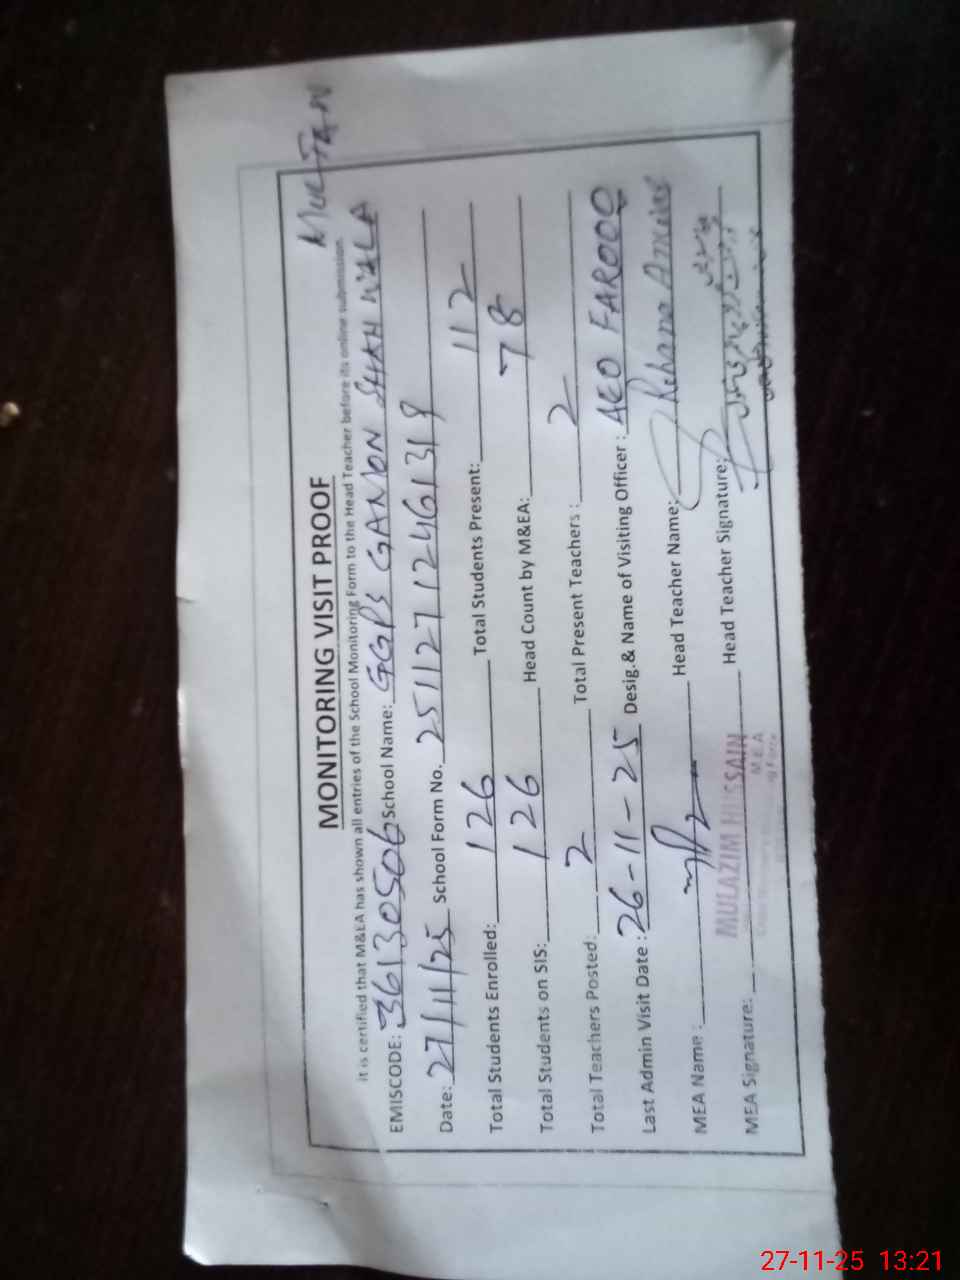 MULTAN
MONITORING VISIT PROOF
it is certified that M&EA has shown all entries of the School Monitoring Form to the Head Teacher before its online submission.
EMISCODE: 36130506 School Name: GGPS GAMON SHAH WALA
Date: 27/11/25 School Form No. 251127124613 18
Total Students Enrolled: 126 Total Students Present: 112
Total Students on SIS: 126 Head Count by M&EA: 78
Total Teachers Posted: 2 Total Present Teachers: 2
Last Admin Visit Date: 26-11-25 Desig.& Name of Visiting Officer: AEO FAROOQ
MEA Name: Head Teacher Name: Rehana
MEA Signature: Head Teacher Signature:
MULAZIM HUSSAIN
M.E.A
27-11-25 13:21